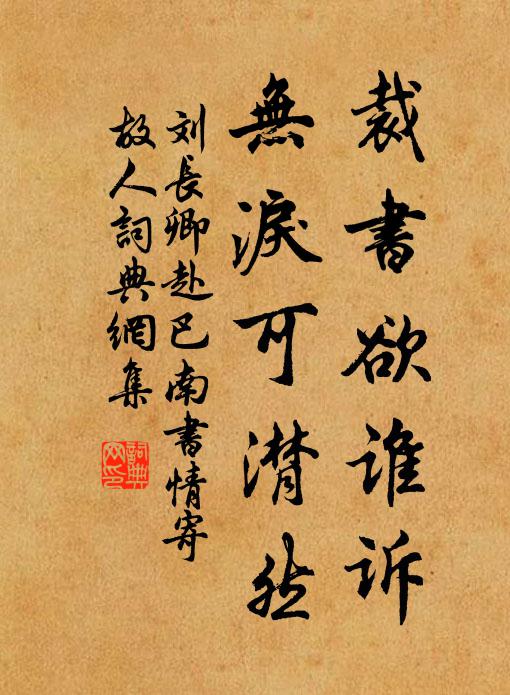 裁書欲誰訴
無淚可潸然
刘長卿赴巴南書情寄
故人詞典網集
詞典
网印